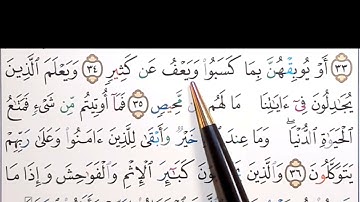 ٣٣ أَوْ يُوبِقْهُنَّ بِمَا كَسَبُوا۟ وَيَعْفُ عَن كَثِيرٍ ٣٤ وَيَعْلَمَ الَّذِينَ
يُجَـٰدِلُونَ فِىٓ ءَايَـٰتِنَا مَا لَهُم مَّحِيصٍ ٣٥ فَمَآ أُوتِيتُم مِّن شَىْءٍ فَمَتَـٰعُ
الْحَيَوٰةِ الدُّنْيَا ۖ وَمَا عِندَ خَيْرٌ وَأَبْقَىٰ لِلَّذِينَ ءَامَنُوا۟ وَعَلَىٰ رَبِّهِمْ
يَتَوَكَّلُونَ ٣٦ وَالَّذِينَ كَبَـٰٓئِرَ الْإِثْمِ وَالْفَوَٰحِشَ وَإِذَا مَا